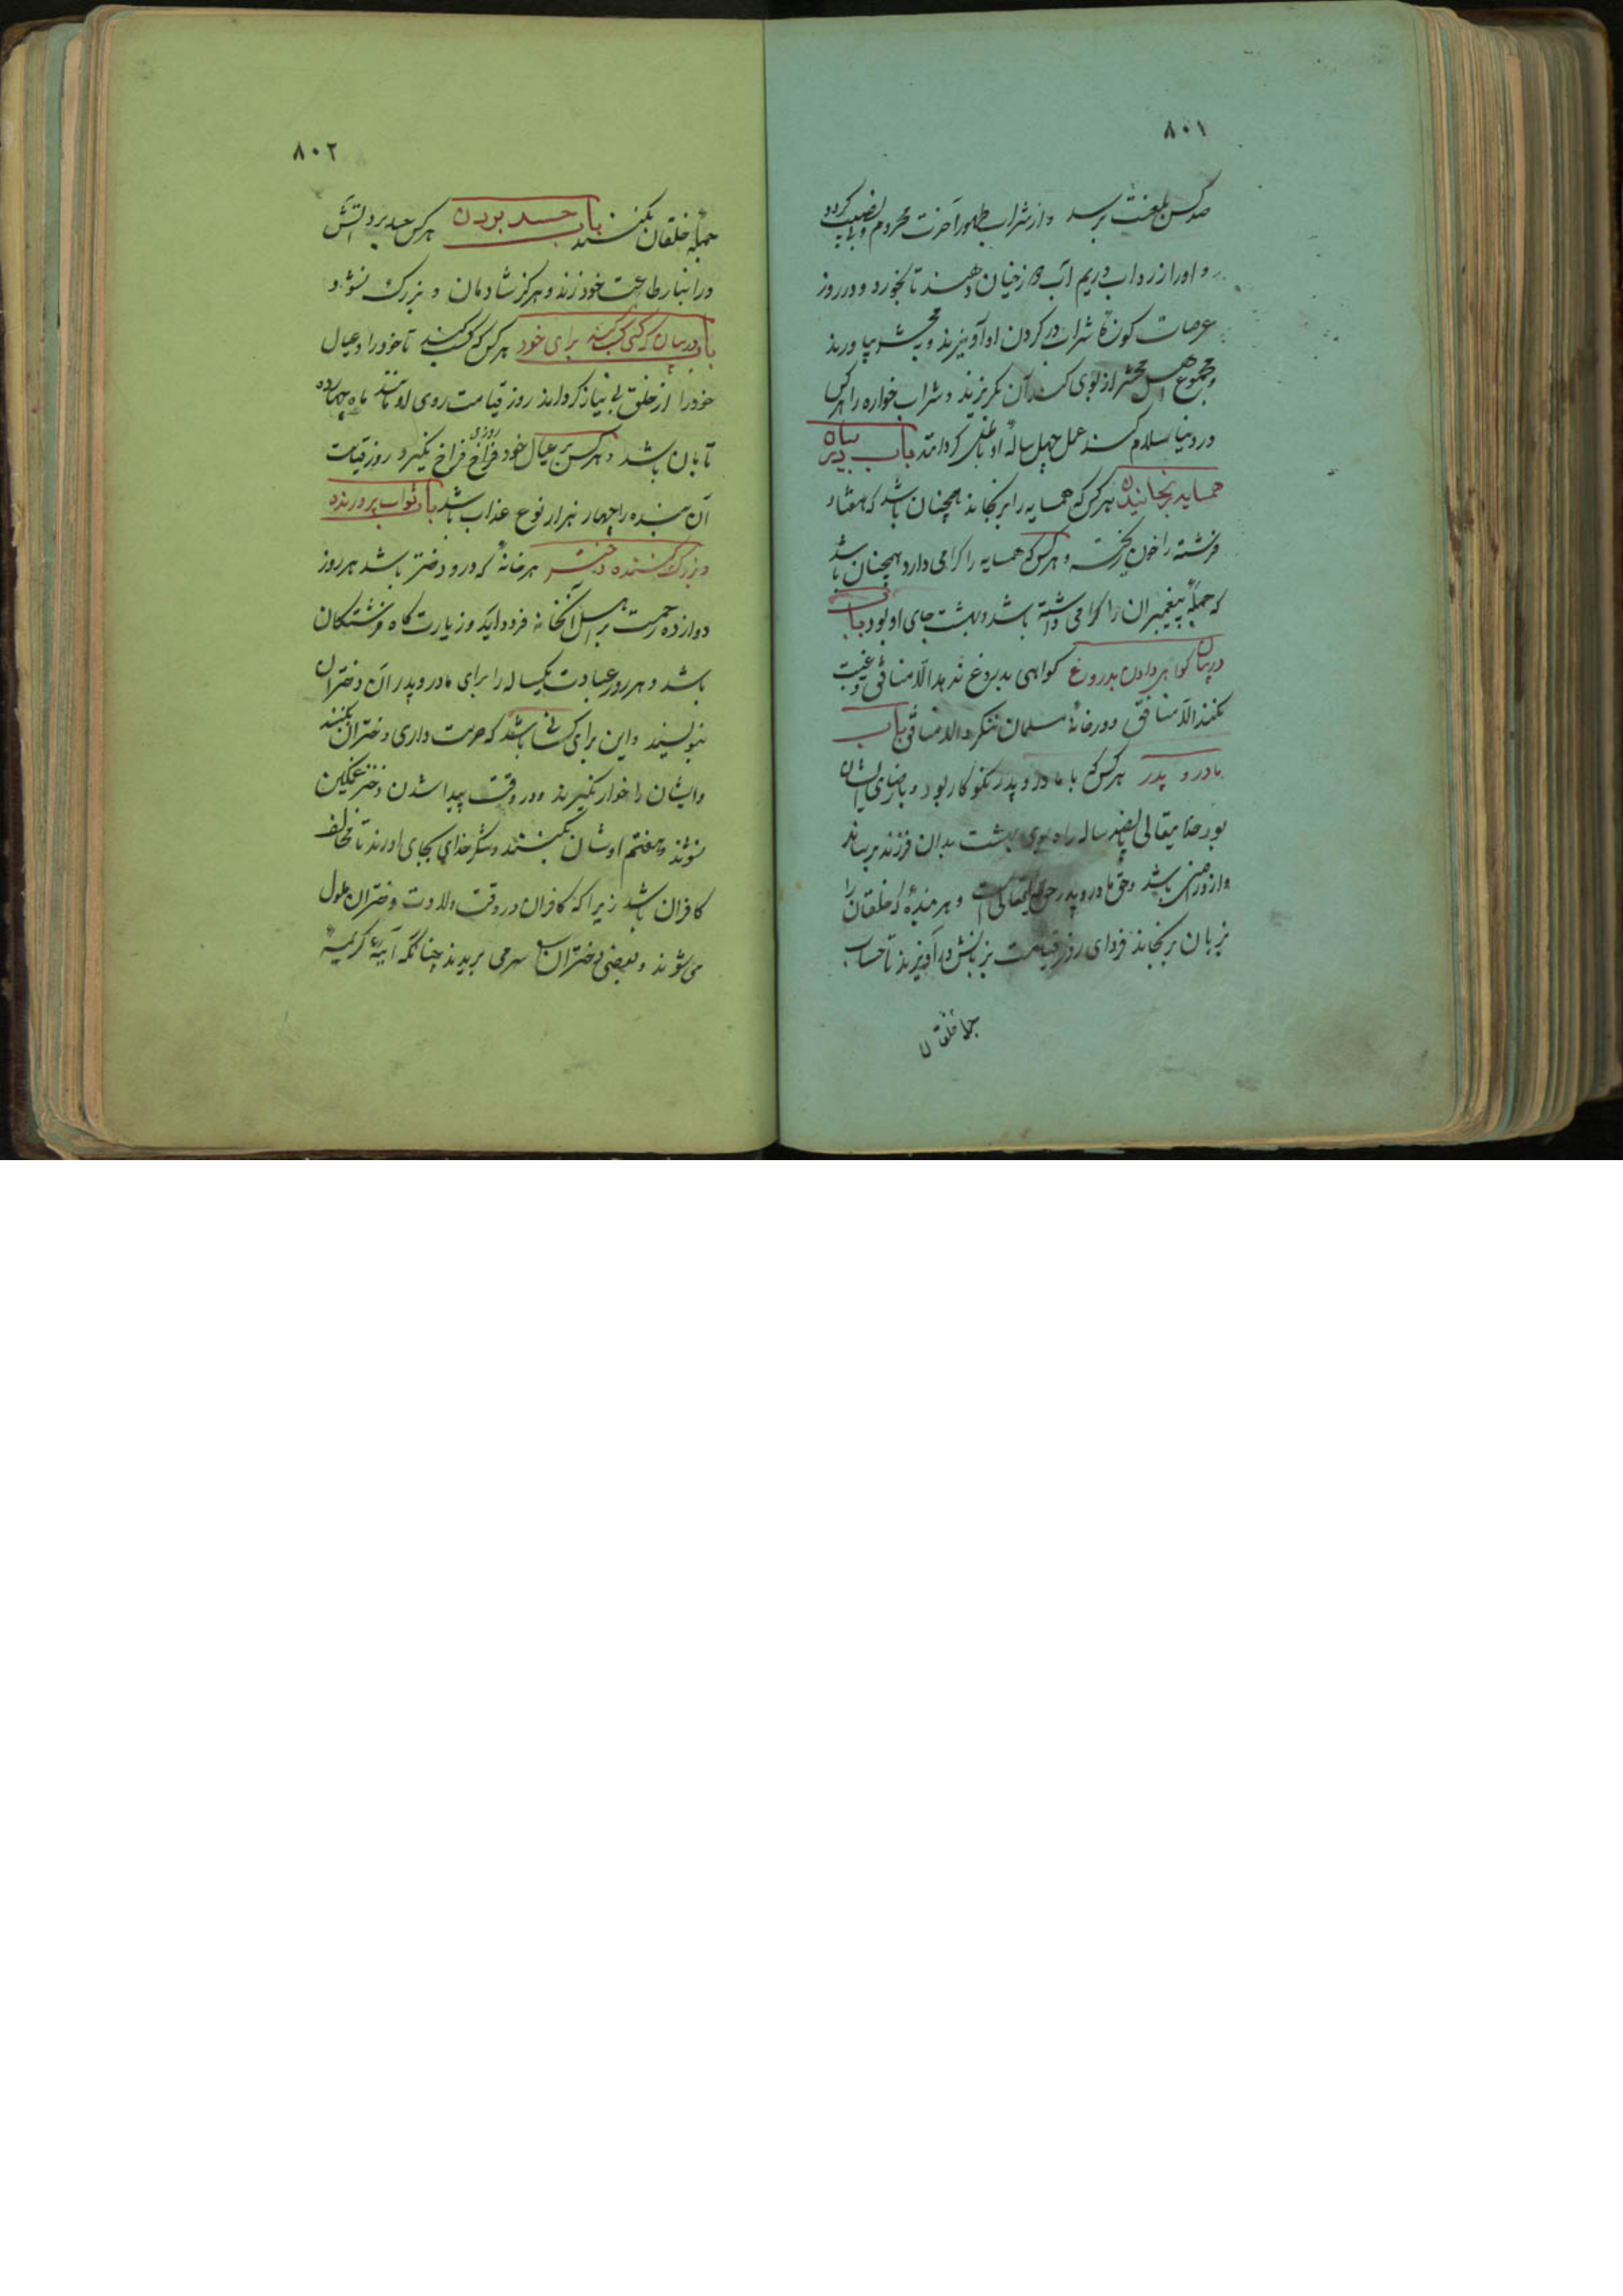 ۸۰۱
صد کس بلعنت برسد و از شراب طهور آخرت محروم و بی نصیب گردد
و اورا زرداب و ریم آب دوزخیان دهند تا بخورد و در روز
عرصات کوزهٔ شراب در کردن او آویزند و بمحشر بیاورند
و مجموع اهل محشر از بوی کند آن بگریزند و شراب خواره را هر کس
در دنیا سلام کند عمل چهل سالهٔ او باطل کردانند باب در بیان
همسایه رنجانیدن هر کس که همسایه را برنجاند همچنان باشد که هفتاد
فرشته را خون ریخته و هر کس که همسایه را کرامی دارد همچنان باشد
که جملهٔ پیغمبران را کرامی داشته باشد و بهشت جای او بود باب
در بیان کواهی دادن بدروغ کواهی بدروغ ندهد الّا منافق و غیبت
نکند الّا منافق و در خانهٔ مسلمان ننکرد الا منافق باب
مادر و پدر هر کس که با مادر و پدر نکو کار بود و با رضای ایشان
بود حقتعالی پانصد ساله راه بوی بهشت بدان فرزند برساند
و از و راضی باشد و حق مادر و پدر حق تعالی است و هر بندهٔ که خلقان را
بزبان برنجاند فردای روز قیامت بزبانش در آویزند تا حساب
جملهٔ خلقان
۸۰۲
جملهٔ خلقان بکنند باب حسد بردن هر کس حسد برد آتش
در انبار طاعت خود زند و هرکز شادمان و بزرک نشود
باب در بیان کسی کسب کند برای خود هر کس که کسب کند تا خود را و عیال
خود را از خلق بی نیاز کرداند روز قیامت روی او مانند ماه چهارده
تابان باشد و هر کس بر عیال خود روزی فراخ فراخ نکیرد روز قیامت
آن بنده را چهار هزار نوع عذاب باشد باب ثواب پرورنده
و بزرک کننده دختر هر خانهٔ که در و دختر باشد هر روز
دوازده رحمت بر اهل آنخانه فرود آید و زیارت کاه فرشتکان
باشد و هر روز عبادت یکساله را برای مادر و پدر آن دختران
بنویسند و این برای کسانی باشد که حرمت داری دختران بکنند
و ایشان را خوار نکیرند و در وقت پیدا شدن دختر غمکین
نشوند و هفتم اوشان بکنند و شکر خدای بجای اورند تا مخالف
کافران باشد زیرا که کافران در وقت ولادت دختران ملول
می شوند و بعضی دختران را سر می بریدند چنانکه آیهٔ کریمه